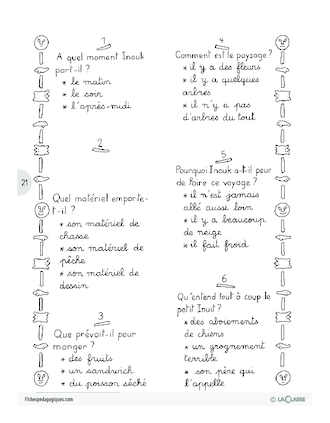 1
A quel moment Inouk
part-il ?
* le matin
* le soir
* l'après-midi
2
Quel matériel emporte-
t-il ?
* son matériel de
chasse
* son matériel de
pêche
* son matériel de
dessin
3
Que prévoit-il pour
manger ?
* des fruits
* un sandwich
* du poisson séché
4
Comment est le paysage ?
* il y a des fleurs
* il y a quelques
arbres
* il n'y a pas
d'arbres du tout
5
Pourquoi Inouk a-t-il peur
de faire ce voyage ?
* il n'est jamais
allé aussi loin
* il y a beaucoup
de neige
* il fait froid
6
Qu'entend tout à coup le
petit Inuit ?
* des aboiements
de chiens
* un grognement
terrible
* son père qui
l'appelle
21
Fichespedagogiques.com
© LACLASSE